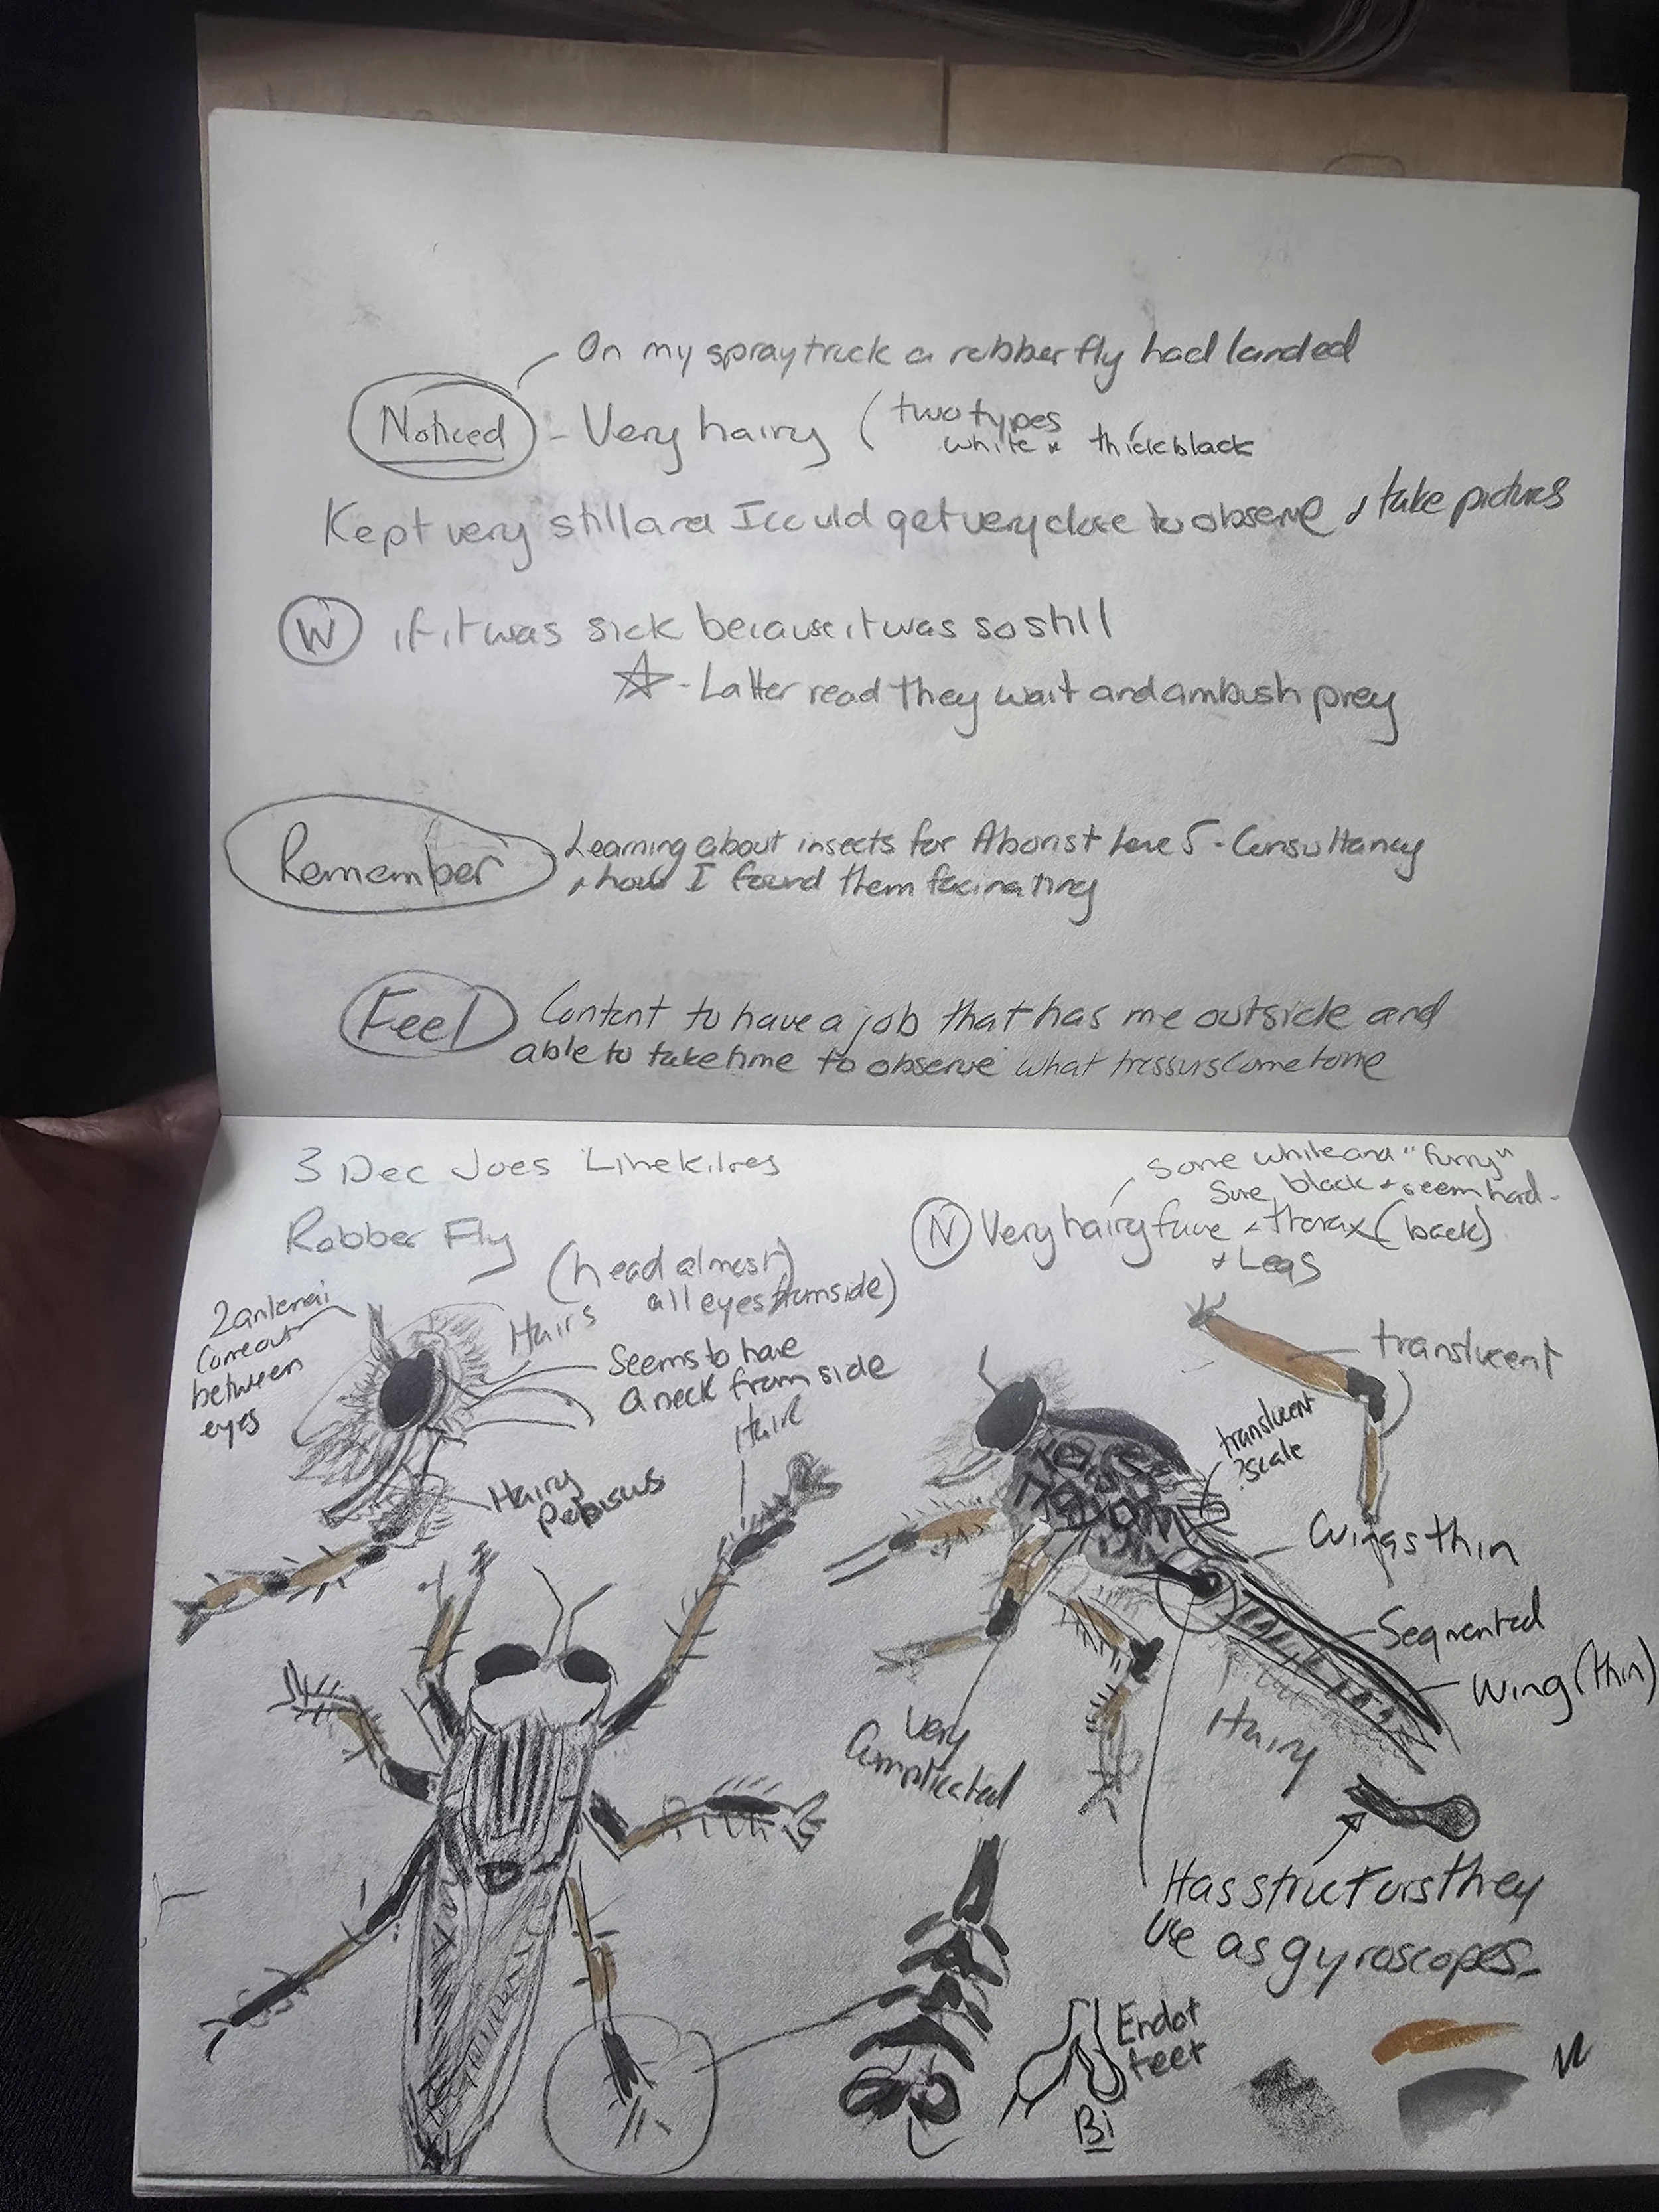 On my spray truck a robber fly had landed
Noticed - Very hairy (two types
white & thick black
Kept very still and I could get very close to observe & take pictures
W if it was sick because it was so still
- Latter read they wait and ambush prey
Remember Learning about insects for Aborist 5 - Consultancy
& how I found them facinating
Feel Content to have a job that has me outside and
able to take time to observe what come to me
3 Dec Joes
Robber Fly
(head almost)
all eyes from side)
Some white and "furry"
black & seem hard -
N Very hairy face & thorax (back)
& Legs
2 antenai
Come out
between
eyes
Hairs
Seems to have
a neck from side
Hair
Hairy
translucent
translucent
?scale
Wings thin
Segmented
Wing (thin)
Hairy
Very
Complicated
Has structurs they
use as gyroscopes
End of
feet
Bi